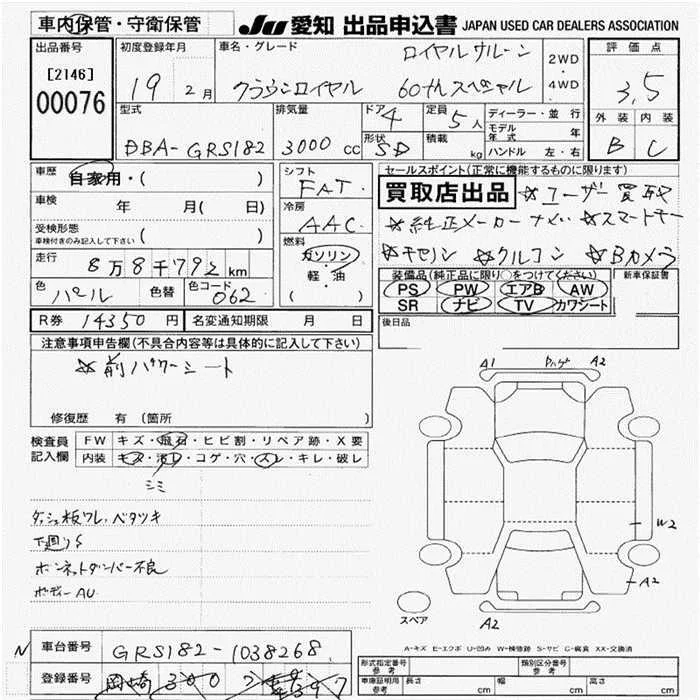 車内保管・守衛保管
JU 愛知 出品申込書 JAPAN USED CAR DEALERS ASSOCIATION
出品番号
[2146]
00076
初度登録年月
19 2月
車名・グレード
ロイヤルサルーン
クラウンロイヤル 60thスペシャル
2WD
・
4WD
評価点
3.5
外装 内装
B C
型式
DBA-GRS182
排気量
3000 cc
ドア 4
形状 SD
定員 5人
積載 kg
ディーラー・並行
モデル年式 年
ハンドル 左・右
車歴
自家用・( )
車検 年 月( 日)
受検形態
車検付きのみ記入して下さい ( )
走行
8万8千792km
色 パール 色替 色コード 062
シフト
FAT
冷房
AAC
燃料
ガソリン
軽・油
( )
セールスポイント(正常に機能するものに限ります)
買取店出品 ☆ユーザー買取
☆純正メーカーナビ ☆スマートキー
☆キセノン ☆クルコン ☆Bカメラ
装備品(純正品に限り○をつけてください)
PS PW エアB AW
SR ナビ TV カワシート
新車保証書
後日品
R券 14350円 名変通知期限 月 日
注意事項申告欄(不具合内容等は具体的に記入して下さい)
☆前パワーシート
修復歴 有(箇所
検査員
記入欄
FW キズ・飛石・ヒビ割・リペア跡・X要
内装 キズ・汚レ・コゲ・穴・スレ・キレ・破レ
シミ
ダッシュ板ワレ、ベタツキ
下廻りS
ボンネットダンパー不良
ボディーAU
A1 ハゲ A2
W2
A2
A2
スペア
A-キズ E-エクボ U-凹み W-補修跡 S-サビ C-腐食 XX-交換済
N
車台番号 GRS182-1038268
登録番号 岡崎 300
形式指定番号 参考
類別区分番号 参考
車庫証明用 参考
長さ cm 幅 cm 高さ cm